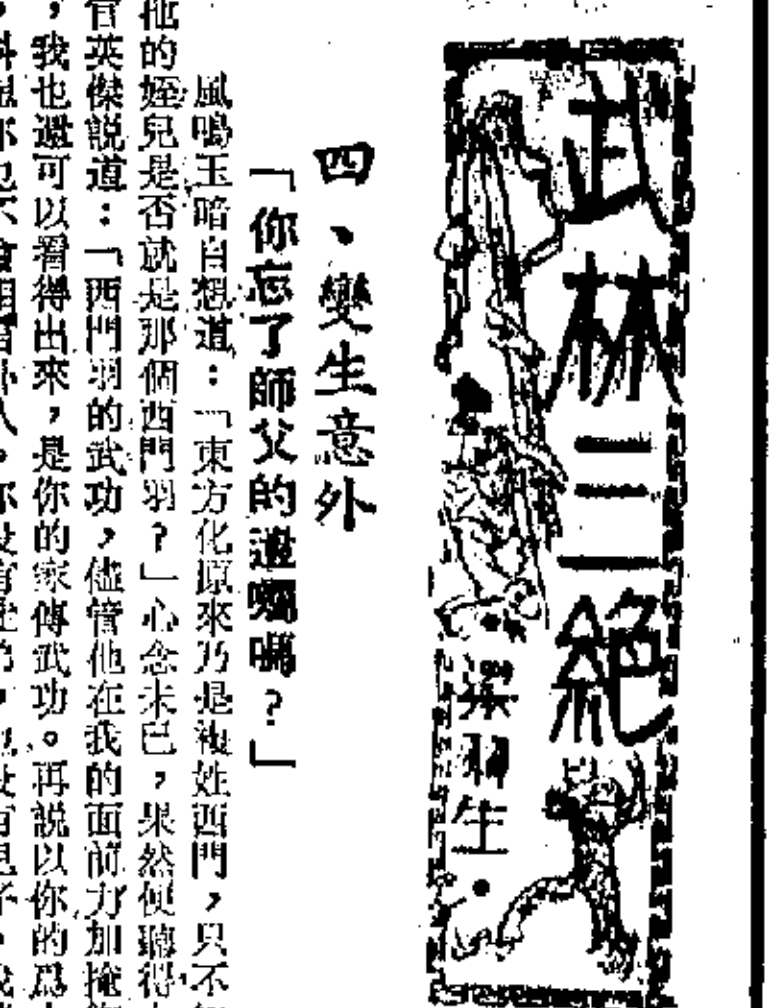 武林三絕
梁羽生
四、變生意外
「你忘了師父的遺囑嗎？」
風鳴玉暗自想道：「東方化原來乃是複姓西門，只不
他的姪兒是否就是那個西門羽？」心念未已，果然便聽得
官英傑說道：「西門羽的武功，儘管他在我的面前力加掩
，我也還可以看得出來，是你的家傳武功。再說以你的爲